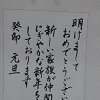 明けまして
おめでとうございます
新しい家族が仲間入りし
にぎやかな新年を
癸卯 元旦